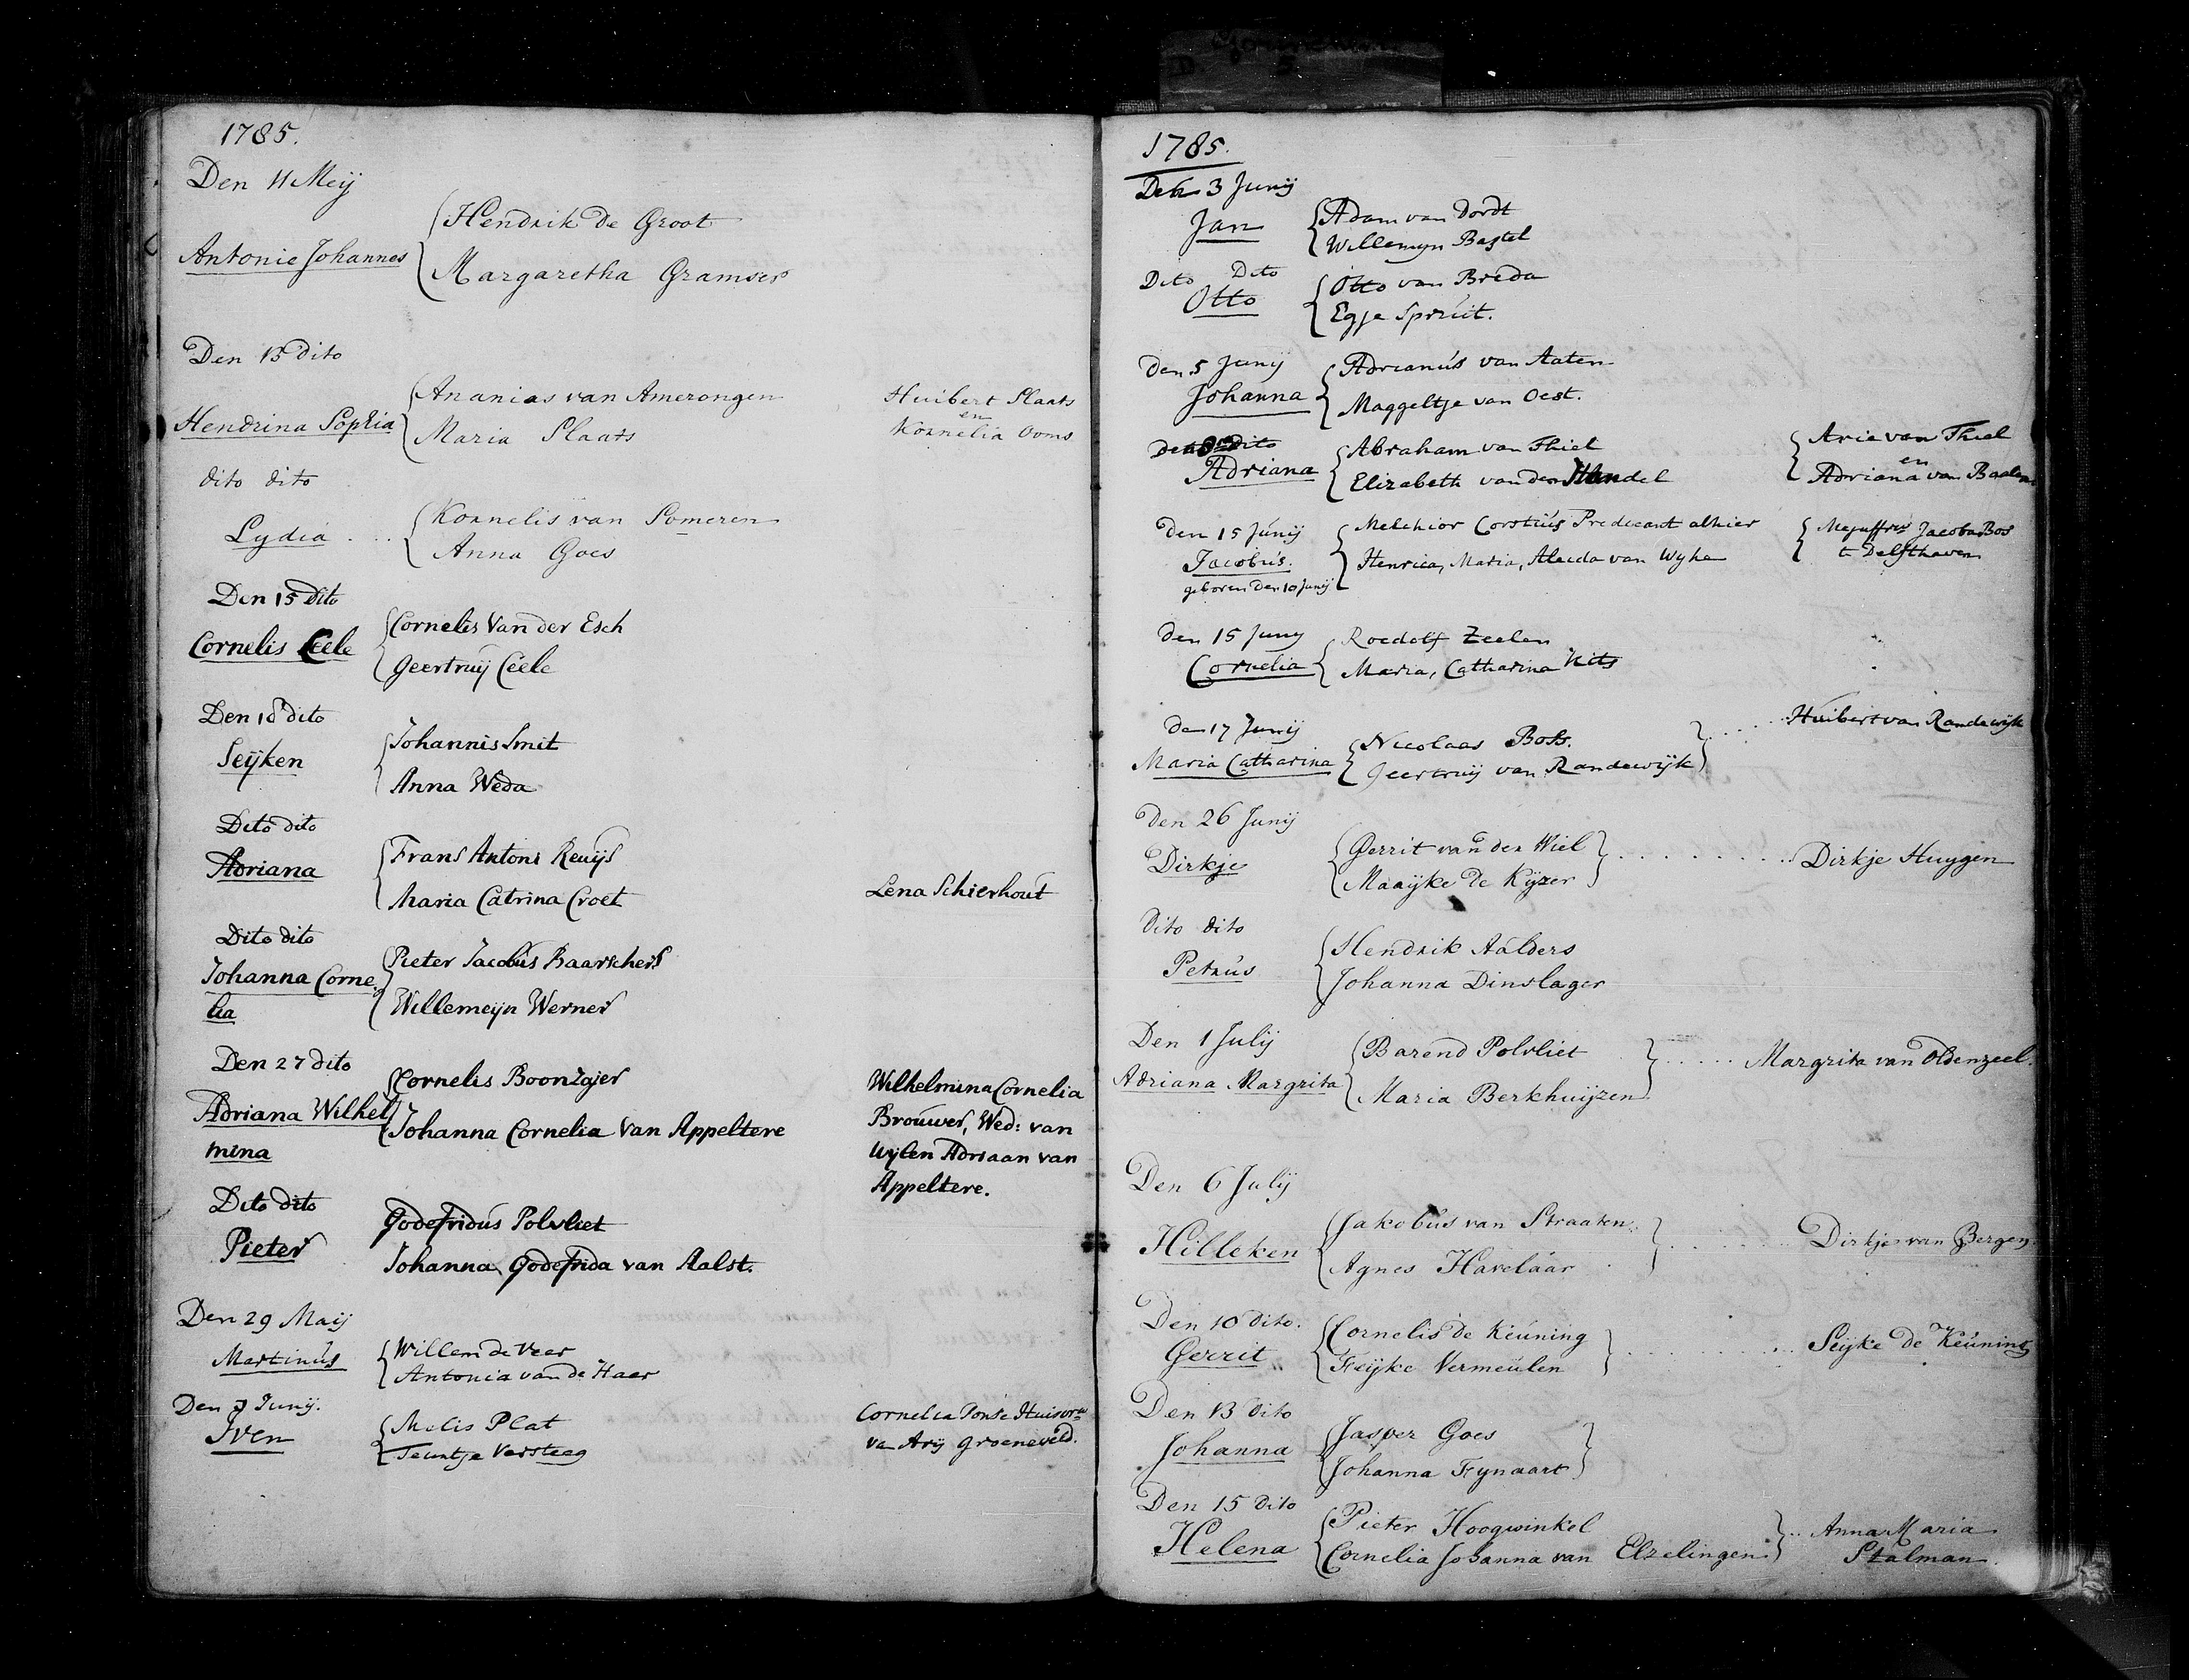 1785.
Den 11 Meij
Antonie Johannes
Hendrik De Groot
Margaretha Gramser
Den 13 dito
Hendrina Sophia
Ananias van Amerongen
Maria Slaats
Huibert Slaats
en
Kornelia Ooms
dito dito
Lydia
Kornelis van Someren
Anna Goes
Den 15 dito
Cornelis Ceele
Cornelis Van der Esch
Geertruij Ceele
Den 18 dito
Seijken
Johannis Smit
Anna Weda
Dito dito
Adriana
Frans Antoni Reuijs
Maria Catrina Croet
Lena Schierhout
Dito dito
Johanna Corne
lia
Pieter Jacobus Baarschers
Willemeijn Werner
Den 27 dito
Adriana Wilhel
mina
Cornelis Boonzajer
Johanna Cornelia Van Appeltere
Wilhelmina Cornelia
Brouwer, Wed: van
wijlen Adriaan van
Appeltere.
Dito dito
Pieter
Godefridus Polvliet
Johanna Godefrida van Aalst.
Den 29 Maij
Martinus
Willem de Veer
Antonia van de Haar
Den Junij.
Iven
Melis Plat
Teuntje Versteeg
Cornelia Ponse Huisvrw
van Arij Groeneveld.
1785.
Den 3 Junij
Jan
Adam van Dordt
Willemyn Bastel
Dito Dito
Otto
Otto van Breda
Egje Spruit.
den 5 Junij
Johanna
Adrianus van Aaten
Maggeltje van Oest.
den 8 dito
Adriana
Abraham van Thiel
Elizabeth van den Handel
Arie van Thiel
en
Adriana van Baalen
den 15 Junij
Jacobus.
geboren den 10 Junij
Melchior Corstius Predicant alhier
Henrica, Maria, Aleida van Wyhe
Mejuffrw Jacoba Bos
te Delfthaven
den 15 Juny
Cornelia
Roedolf Zeelen
Maria, Catharina Kits
den 17 Junij
Maria Catharina
Nicolaas Boss.
Geertruij van Randewijk
Huibert van Randewijk
Den 26 Junij
Dirkje
Gerrit van der Wiel
Maaijke De Kijzer
Dirkje Huygen
Dito dito
Petrus
Hendrik Aalders
Johanna Dinslager
Den 1 Julij
Adriana Margrita
Barend Polvliet
Maria Berkhuijzen
Margrita van Oldenzeel.
Den 6 Julij
Hilleken
Jakobus van Straaten
Agnes Havelaar
Dirkje van Bergen
Den 10 dito.
Gerrit
Cornelis de Keuning
Feijke Vermeulen
Seijke de Keuning
Den 13 dito
Johanna
Jasper Goes
Johanna Fynaart
Den 15 dito
Helena
Pieter Hoogwinkel
Cornelia Johanna van Elzelingen
Anna Maria
Stalman